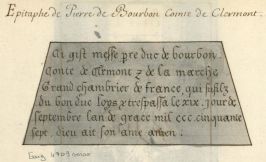 Epitaphe de Pierre de Bourbon Comte de Clermont.
Ci gist messe pre duc de bourbon
Conte de clermont & de la marche
Grand chambrier de france, qui fu filz
du bon duc loys & trespassa le xix. jour de
septembre lan de grace mil ccc. cinquante
sept. dieu ait son ame amen :
Gaig. 4709